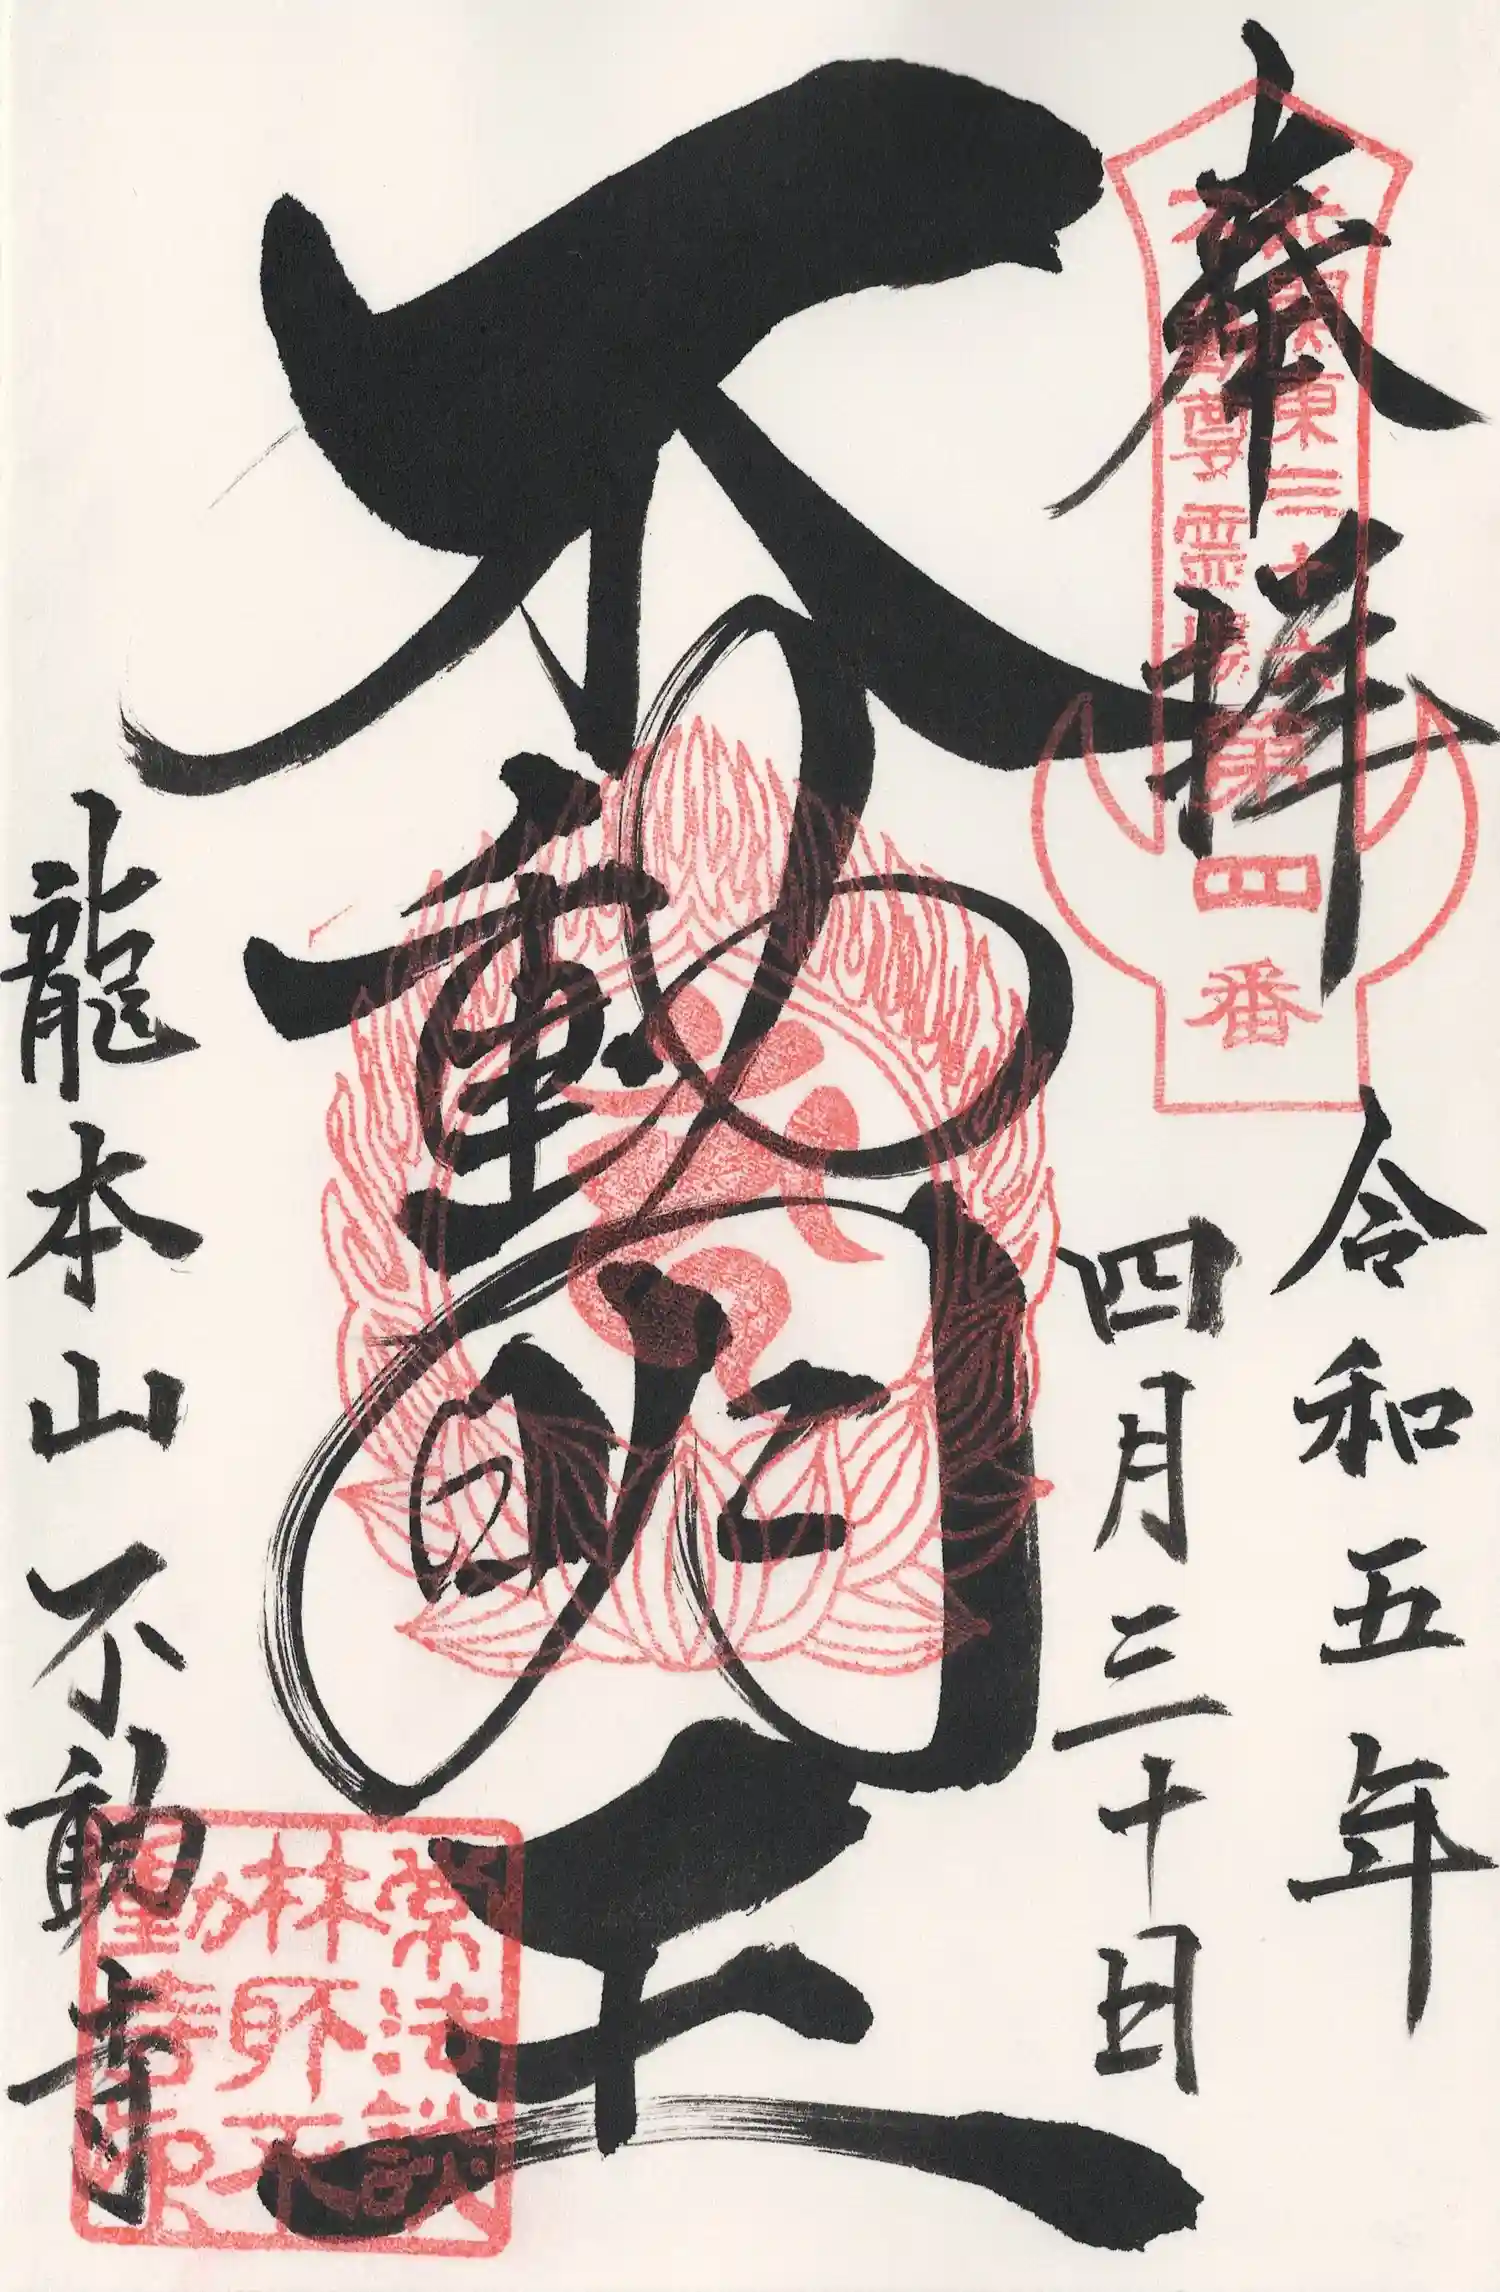 奉拝
北関東三十六
不動尊霊場
第四番
令和五年
四月三十日
不動明王
龍本山不動寺
常法談
林所不
動寺印